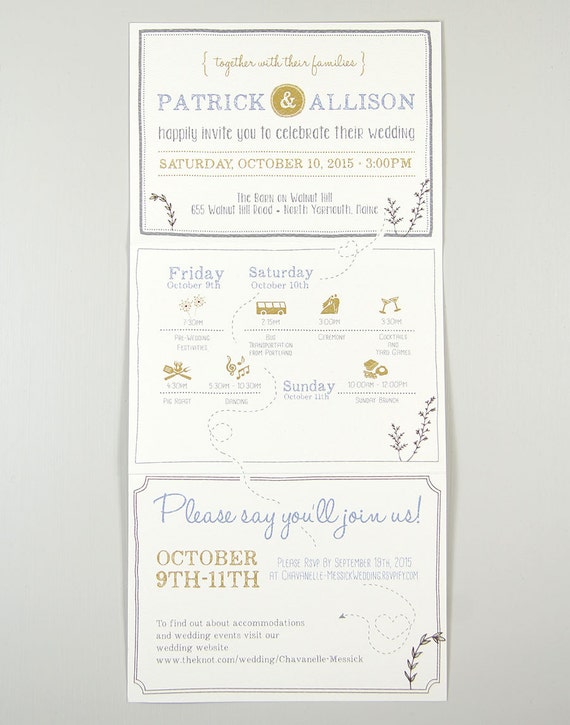 { together with their families }
PATRICK & ALLISON
happily invite you to celebrate their wedding
SATURDAY, OCTOBER 10, 2015 · 3:00PM
The Barn on Walnut Hill
655 Walnut Hill Road - North Yarmouth, Maine
Friday
October 9th
Saturday
October 10th
7:30PM
Pre-Wedding
Festivities
Bus
Transportation
from Portland
3:00PM
Ceremony
3:30PM
Cocktails
and
Yard Games
4:30PM
Pig Roast
5:30PM - 10:30PM
Dancing
Sunday
October 11th
10:00AM - 12:00PM
Sunday Brunch
Please say you'll join us!
OCTOBER
9TH-11TH
Please RSVP by September 19th, 2015
at Chavanelle-MessickWedding.rsvpify.com
To find out about accommodations
and wedding events visit our
wedding website
www.theknot.com/wedding/Chavanelle-Messick